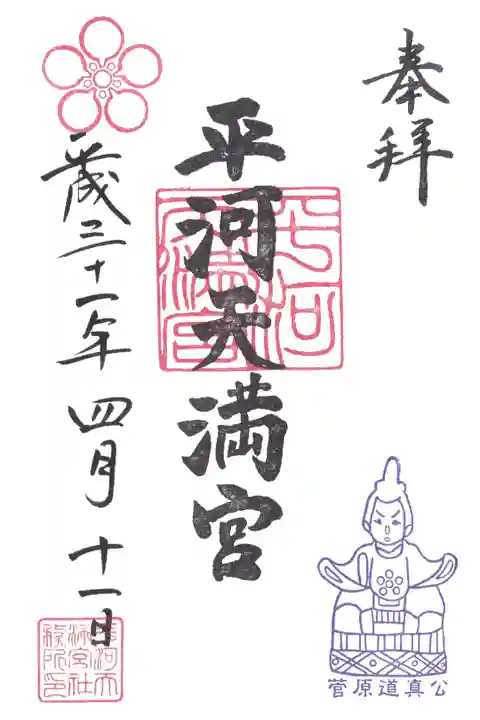 奉拝
平河天満宮
平成三十一年 四月 十一日
平河天満宮
平河天満宮社務所印
菅原道真公